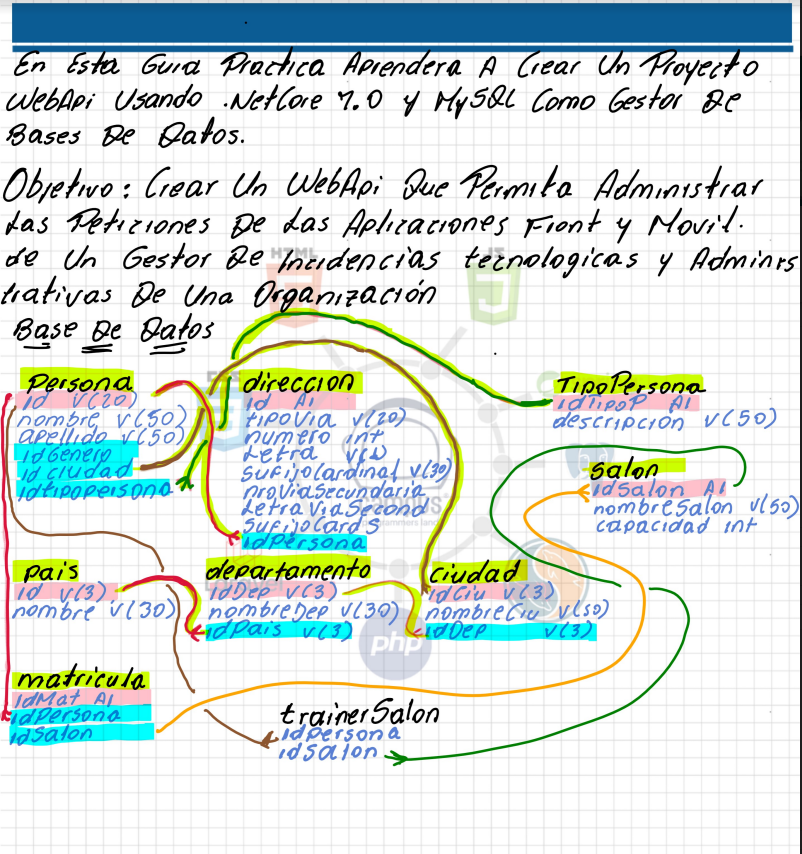 En Esta Guia Practica Aprendera A Crear Un Proyecto
WebApi Usando .NetCore 7.0 y MySQL Como Gestor De
Bases De Datos.
Objetivo: Crear Un WebApi Que Permita Administrar
Las Peticiones De Las Aplicaciones Front y Movil.
de Un Gestor De Incidencias tecnologicas y Adminis
trativas De Una Organización
Base De Datos
HTML
JS
Persona
id v(20)
nombre v(50)
apellido v(50)
idGenero
id ciudad
idtipopersona
direccion
id AI
tipoVia v(20)
numero int
Letra
sufijoCardinal v(30)
nroViaSecundaria
LetraViaSecond
SufijoCardS
idPersona
TipoPersona
idTipoP AI
descripción v(50)
Salon
idSalon AI
nombreSalon v(50)
capacidad int
pais
id v(3)
nombre v(30)
departamento
idDep v(3)
nombreDep v(30)
idPais v(3)
Ciudad
idCiu v(3)
nombreCiu v(50)
idDep v(3)
php
matricula
idMat AI
idPersona
idSalon
trainerSalon
idpersona
idSalon